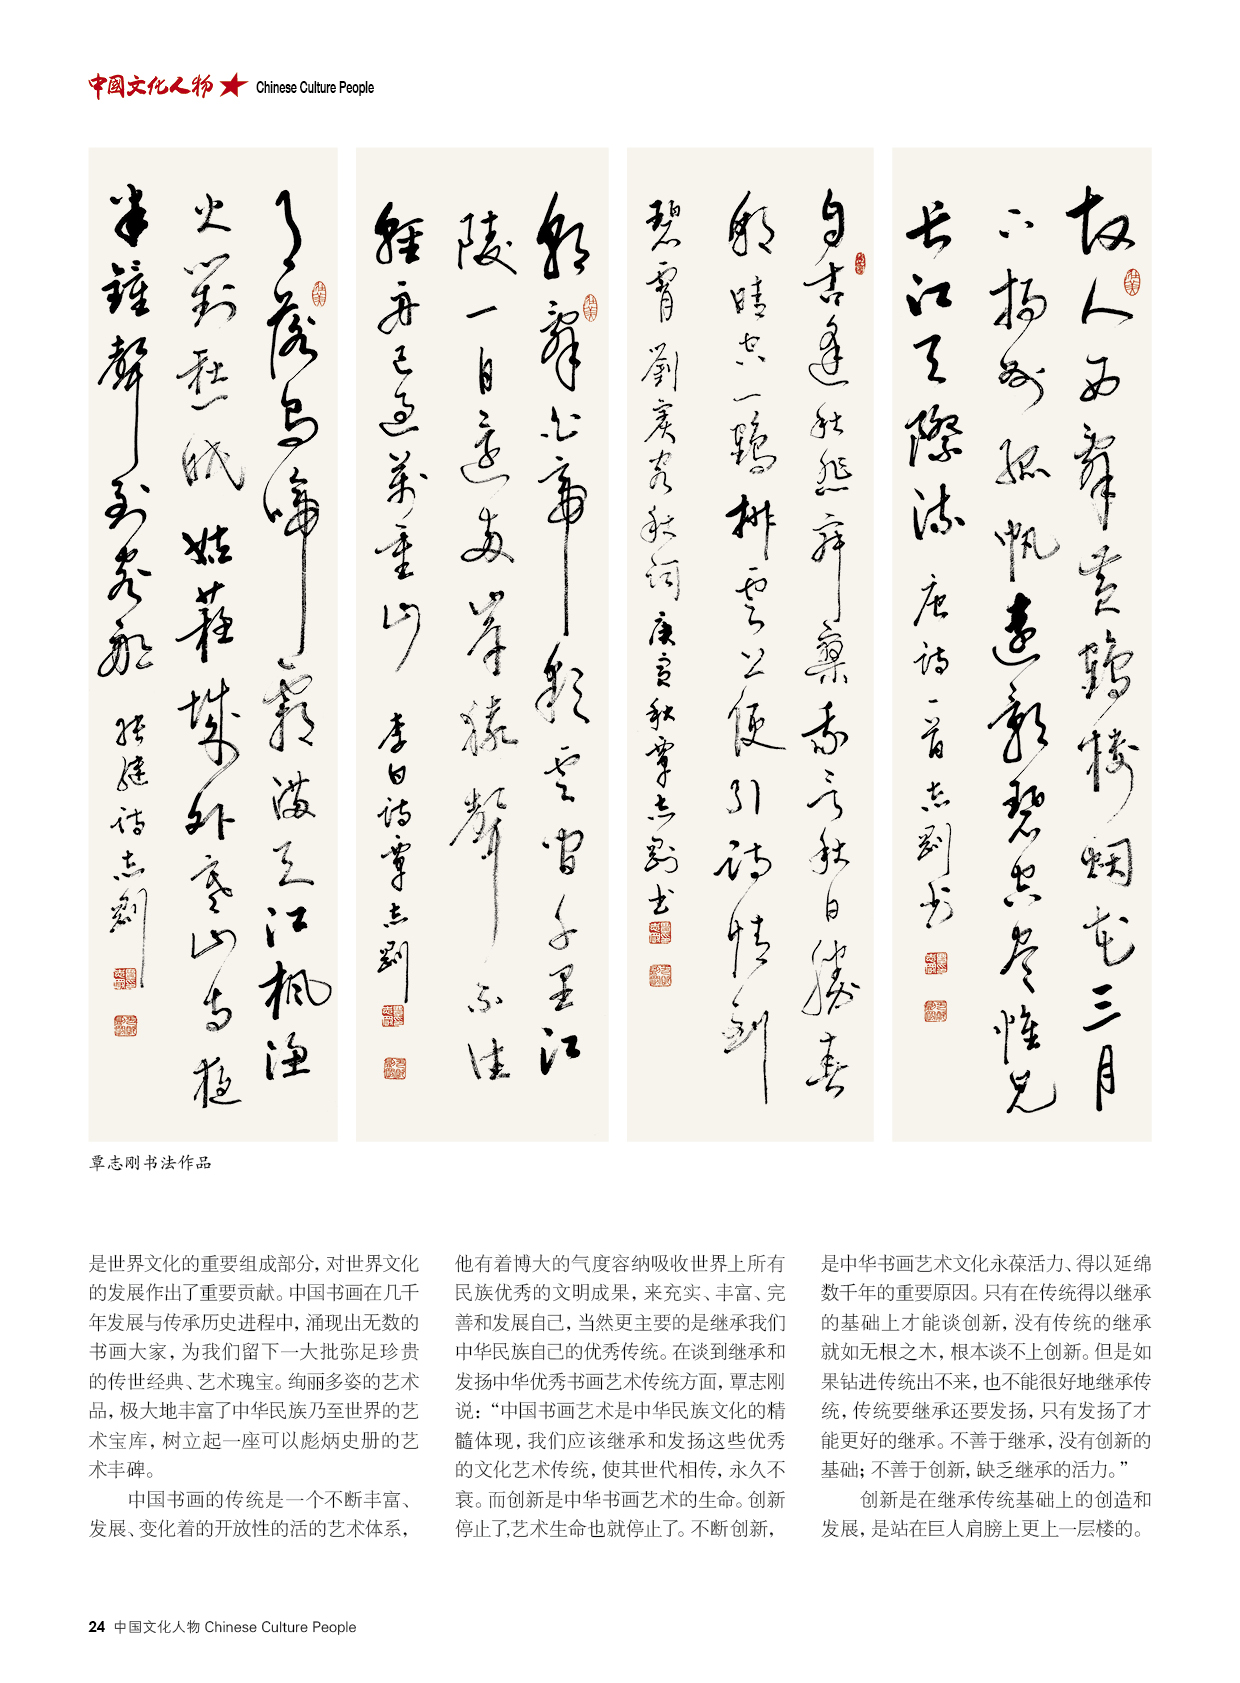 中國文化人物 Chinese Culture People
故人西辭黄鶴楼烟花三月
下揚州孤帆遠影碧空尽惟见
长江天際流 唐诗一首志剛书
自古逢秋悲寂寥我言秋日勝春
朝晴空一鶴排雲上便引诗情到
碧霄劉宾客秋詞庚寅秋覃志剛书
朝辭白帝彩雲間千里江
陵一日還两岸猿聲不住
輕舟已過萬重山 李白诗覃志剛
月落烏啼霜满天江枫渔
火對愁眠姑蘇城外寒山寺夜
半鐘聲到客船 張継诗志剛
覃志刚书法作品
是世界文化的重要组成部分，对世界文化
的发展作出了重要贡献。中国书画在几千
年发展与传承历史进程中，涌现出无数的
书画大家，为我们留下一大批弥足珍贵
的传世经典、艺术瑰宝。绚丽多姿的艺术
品，极大地丰富了中华民族乃至世界的艺
术宝库，树立起一座可以彪炳史册的艺
术丰碑。
中国书画的传统是一个不断丰富、
发展、变化着的开放性的活的艺术体系，
他有着博大的气度容纳吸收世界上所有
民族优秀的文明成果，来充实、丰富、完
善和发展自己，当然更主要的是继承我们
中华民族自己的优秀传统。在谈到继承和
发扬中华优秀书画艺术传统方面，覃志刚
说：“中国书画艺术是中华民族文化的精
髓体现，我们应该继承和发扬这些优秀
的文化艺术传统，使其世代相传，永久不
衰。而创新是中华书画艺术的生命。创新
停止了,艺术生命也就停止了。不断创新，
是中华书画艺术文化永葆活力、得以延绵
数千年的重要原因。只有在传统得以继承
的基础上才能谈创新，没有传统的继承
就如无根之木，根本谈不上创新。但是如
果钻进传统出不来，也不能很好地继承传
统，传统要继承还要发扬，只有发扬了才
能更好的继承。不善于继承，没有创新的
基础；不善于创新，缺乏继承的活力。”
创新是在继承传统基础上的创造和
发展，是站在巨人肩膀上更上一层楼的。
24 中国文化人物 Chinese Culture People